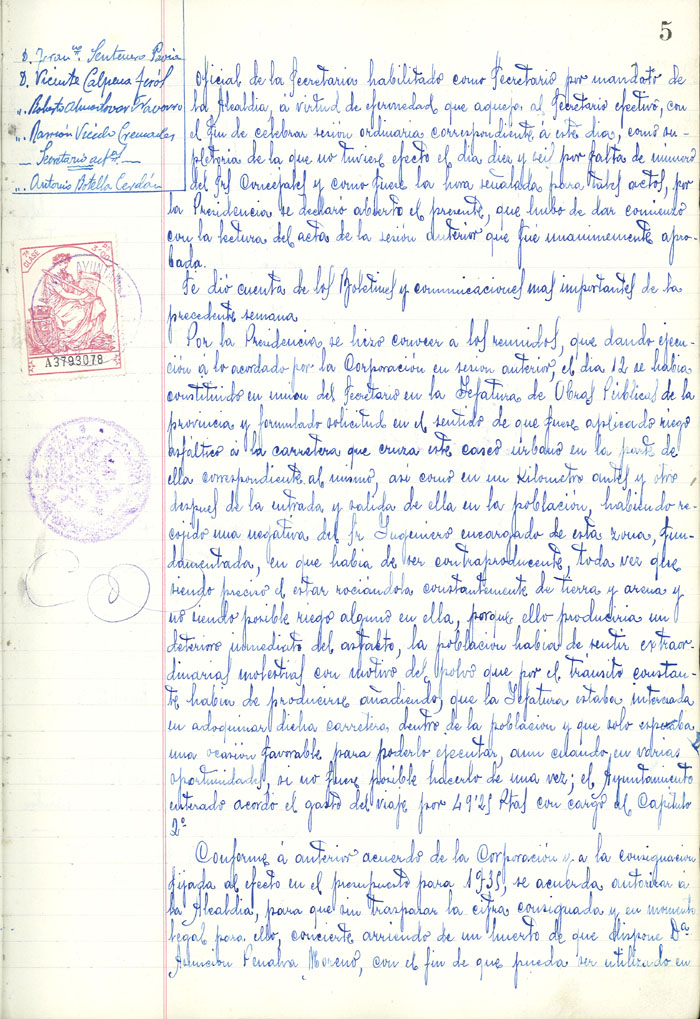 5
D. Fran.co Sentenero Pavia
D. Vicente Calpena Jerós
„ Roberto Almodovar Navarro
„ Ramón Vicedo Cremades
— Secretario actal. —
„ Antonio Botella Cerdán
7ª CLASE
AYUNTAM
A3793078
oficial de la Secretaria habilitado como Secretario por mandato de
la Alcaldia, á virtud de efermedad que aqueja al Secretario efectivo, con
el fin de celebrar sesión ordinaria correspondiente á este dia, como su-
pletoria de la que no tuviere efecto el dia diez y seis por falta de número
del Srs Concejales y como fuese la hora señalada para tales actos, por
la Presidencia se declaró abierto el presente, que hubo de dar comienzo
con la lectura del acta de la sesión anterior que fué unanimemente apro-
bada.
Se dió cuenta de los Boletines y comunicaciones mas importantes de la
precedente semana
Por la Presidencia se hizo conocer a los reunidos, que dando ejecu-
ción á lo acordado por la Corporación en sesion anterior, el dia 12 se habia
constituido en union del Secretario en la Jefatura de Obras Públicas de la
provincia y formulado solicitud en el sentido de que fuese aplicado riego
asfáltico á la carretera que cruza este casco urbano en la parte de
ella correspondiente al mismo, así como en un kilometro antes y otro
despues de la entrada y salida de ella en la población, habiendo re-
cojido una negativa del Sr Ingeniero encargado de esta zona, fun-
damentada, en que habia de ser contraproducente, toda vez que
siendo preciso el estar rociándola constantemente de tierra y arena y
no siendo posible riego alguno en ella, porque ello produciria un
deterioro inmediato del asfalto, la poblacion habia de sentir extraor-
dinarias molestias con motivo del polvo que por el tránsito constan-
te habia de producirse añadiendo, que la Jefatura estaba interesada
en adoquinar dicha carretera dentro de la poblacion y que solo esperaba
una ocasión favorable para poderlo ejecutar, aun cuando, en varias
oportunidades, si no fuese posible hacerlo de una vez; el Ayuntamiento
enterado acordó el gasto del viaje por 49'25 Ptas con cargo al Capitulo
2º
Conforme á anterior acuerdo de la Corporación y a la consignacion
fijada al efecto en el presupuesto para 1935, se acuerda autorizar á
la Alcaldia, para que sin traspasar la cifra consignada y en momento
legal para ello, concierte arriendo de un huerto de que dispone Dª
Asuncion Penalva Moreno, con el fin de que pueda ser utilizado en